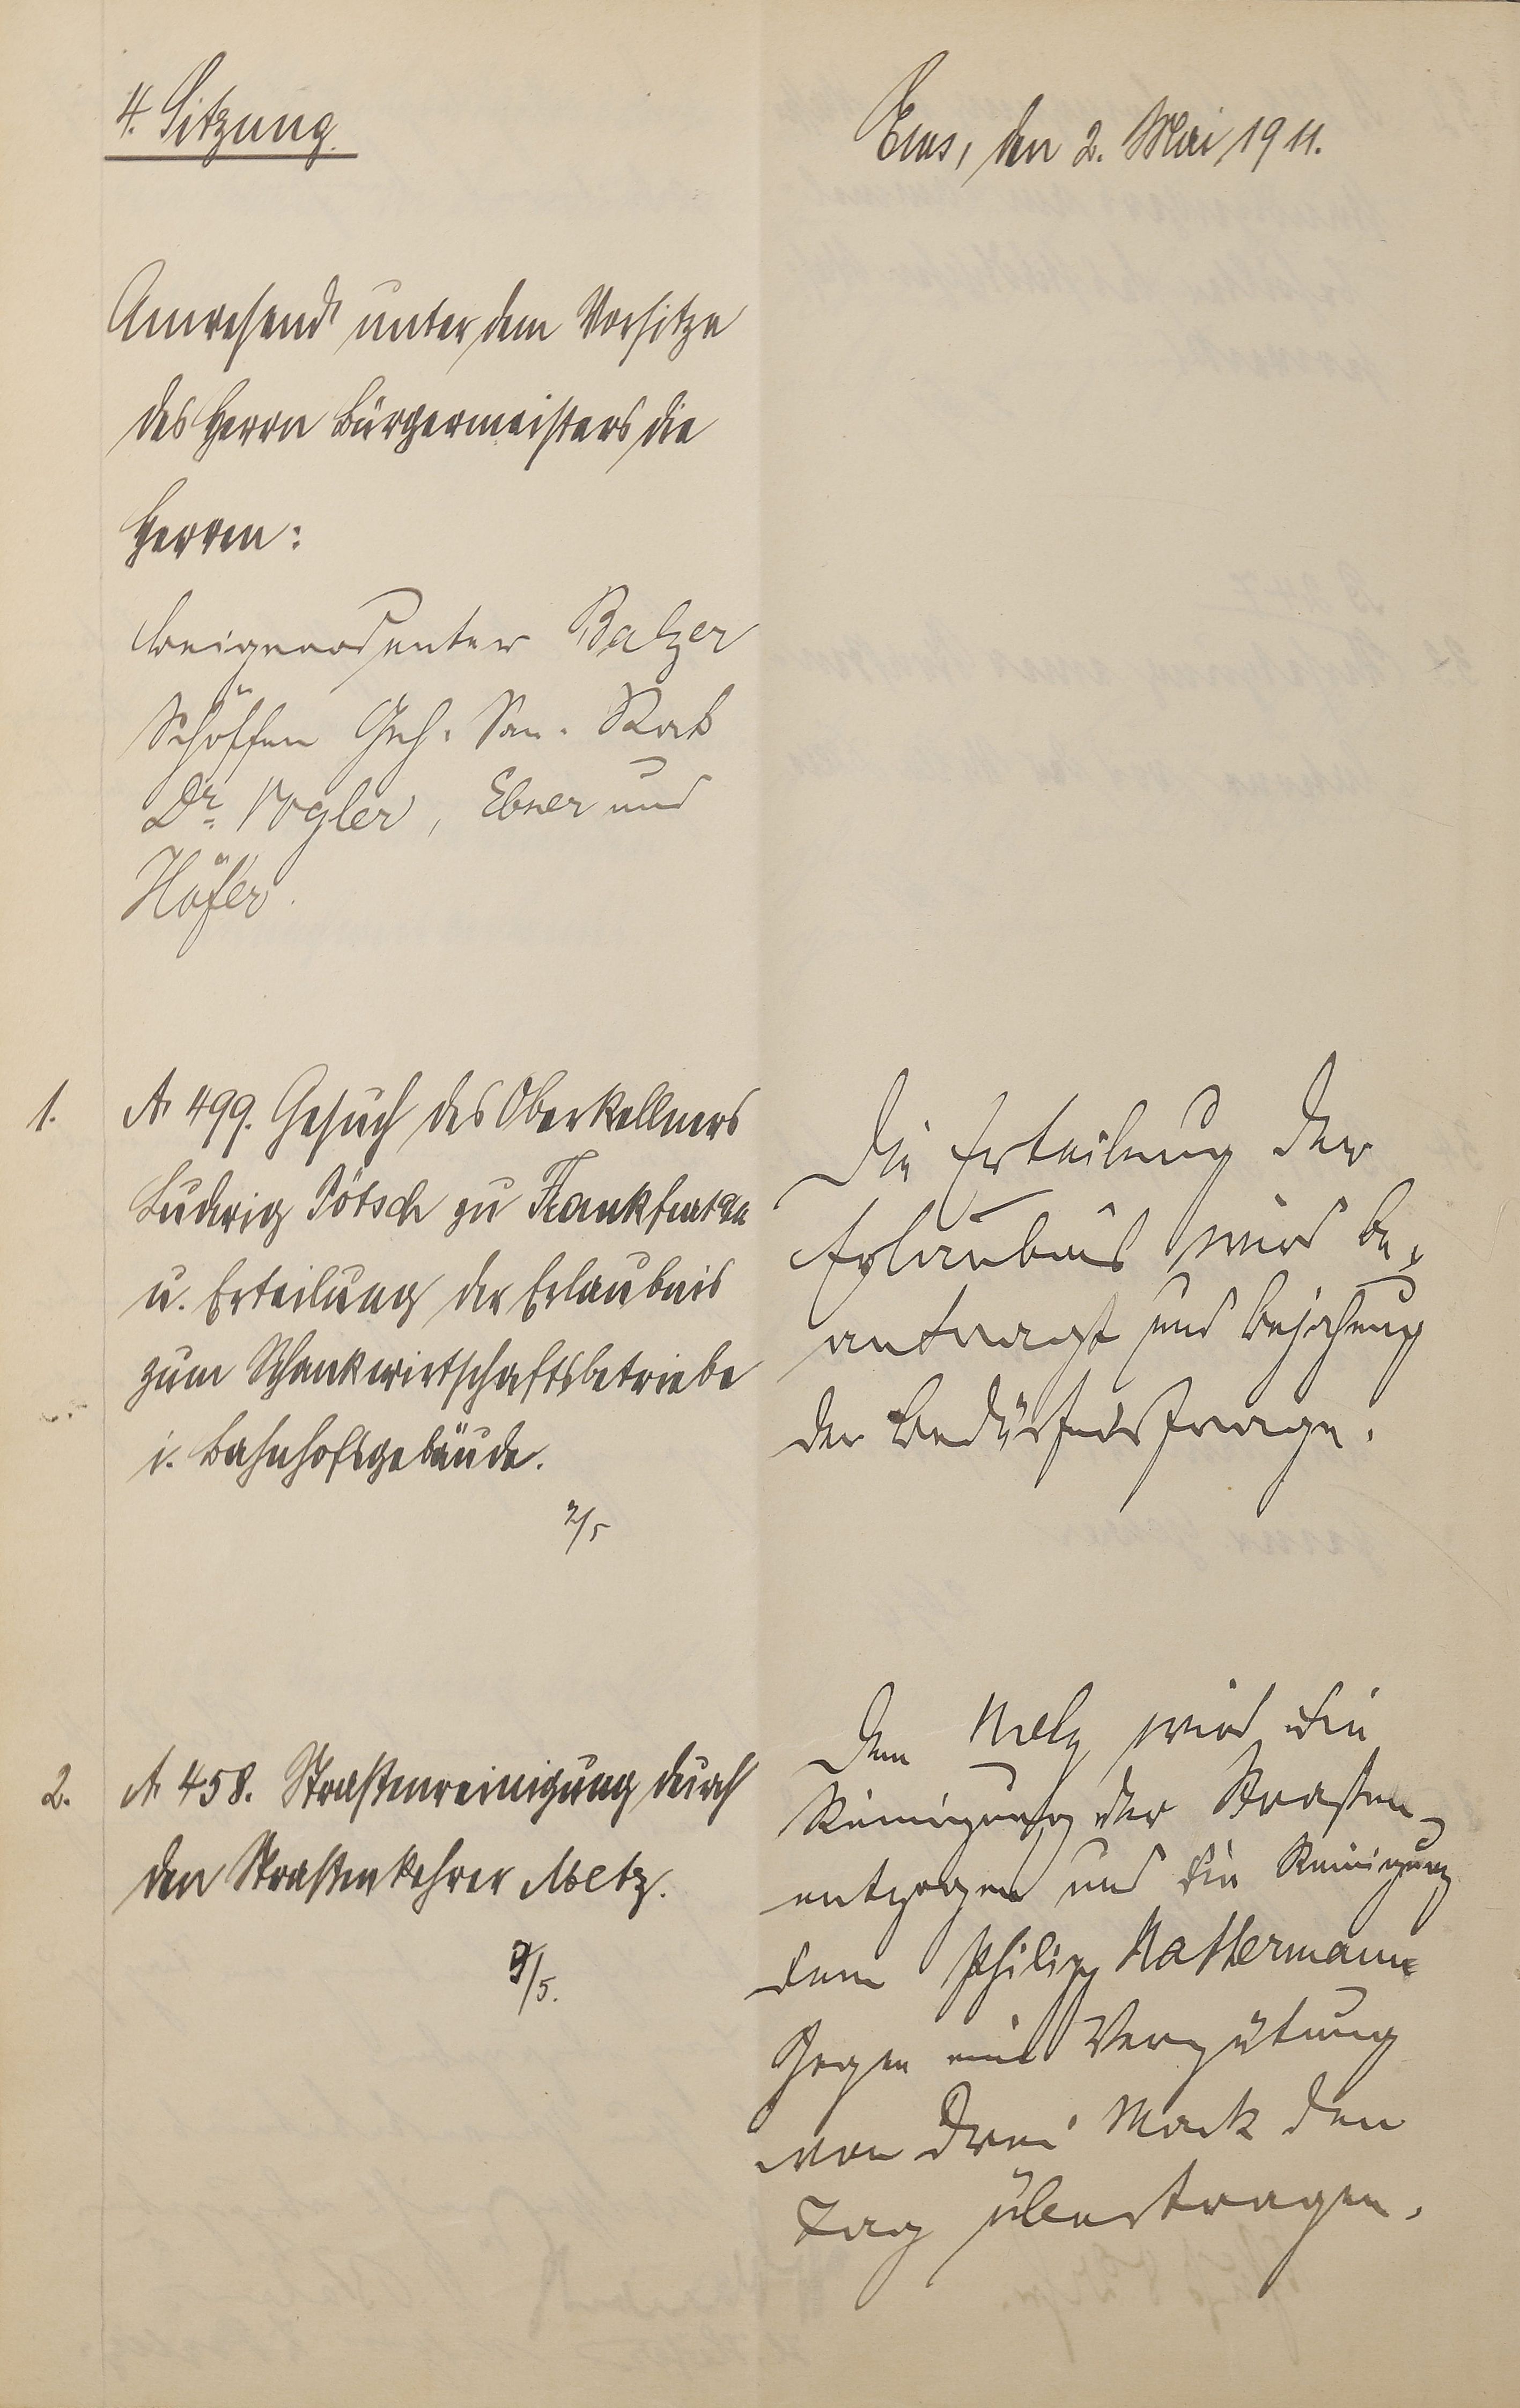 4. Sitzung.
Ems, den 2. Mai 1911.
Anwesend unter dem Vorsitze
des Herrn Bürgermeisters die
Herren:
Beigeordneter Balzer
Schöffen Geh. San. Rat
Dr. Vogler, Ebner und
Höfer.
1. A 499. Gesuch des Oberkellners
Ludwig Pötsch zu Frankfurt a/M
u. Erteilung der Erlaubnis
zum Schankwirtschaftsbetriebe
i. Bahnhofsgebäude.
2/5
Die Erteilung der
Erlaubnis wird be-
antragt und Bejahung
der Bedürfnisfrage.
2. A 458. Straßenreinigung durch
den Straßenkehrer Metz.
9/5.
Dem Metz wird die
Reinigung der Straßen
entzogen und die Reinigung
dem Philipp Nattermann
gegen eine Vergütung
von drei Mark den
Tag übertragen.